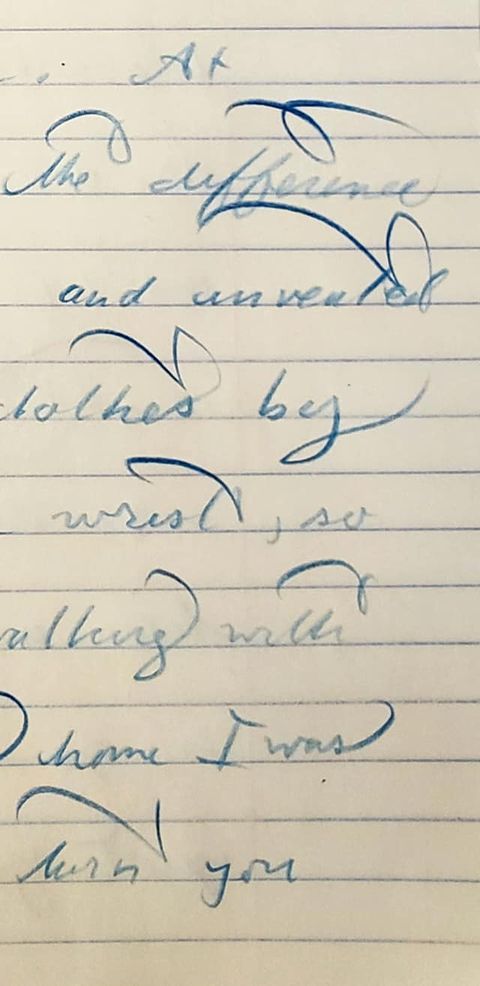 At
the difference
and unveiled
clothes by
wrist, so
walking with
home I was
turn you